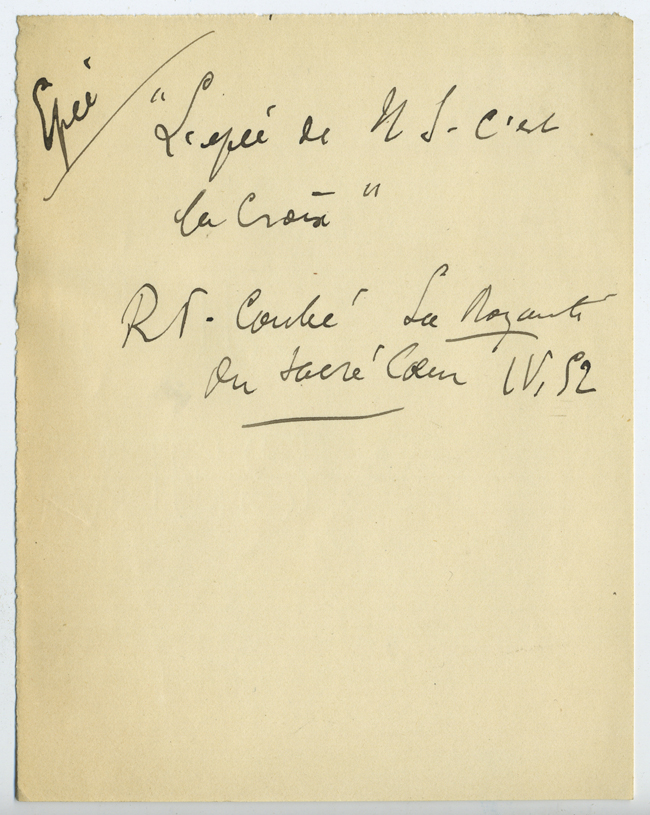 Epée
"L'epée de N S. c'est
la Croix"
R P. Coubé La Royauté
du Sacré Cœur IV, 52